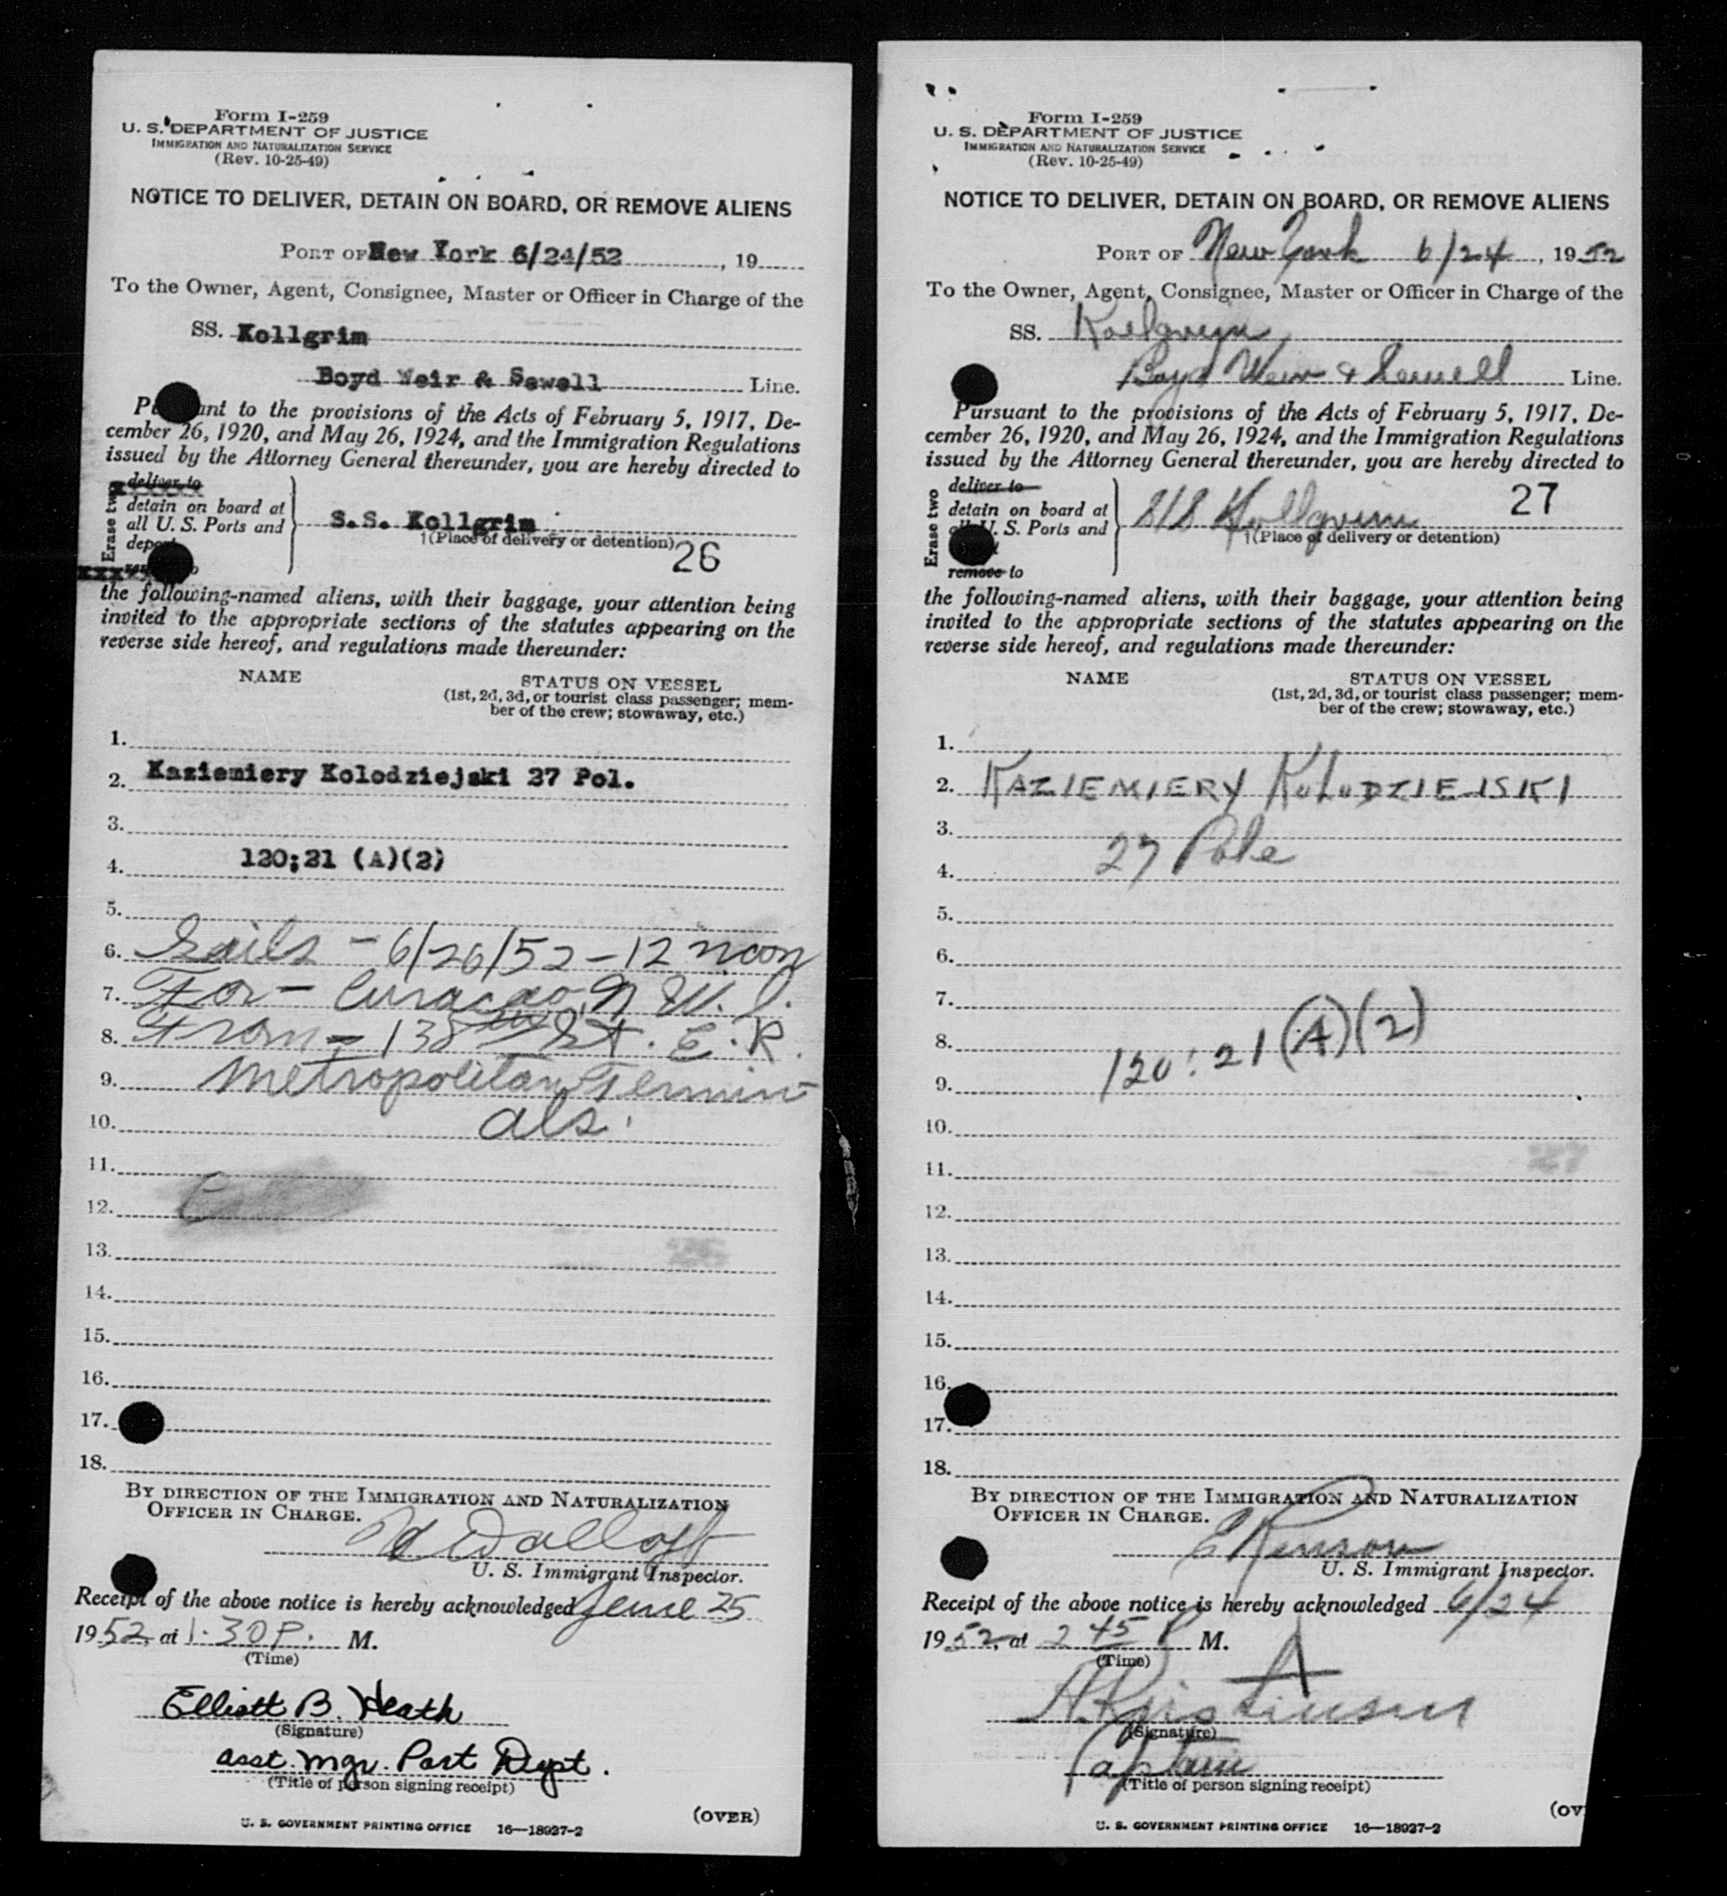 Form I-259
U. S. DEPARTMENT OF JUSTICE
IMMIGRATION AND NATURALIZATION SERVICE
(Rev. 10-25-49)
NOTICE TO DELIVER, DETAIN ON BOARD, OR REMOVE ALIENS
PORT OF New York 6/24/52, 19
To the Owner, Agent, Consignee, Master or Officer in Charge of the
SS. Kollgrim
Boyd Weir & Sewell Line.
Pu ant to the provisions of the Acts of February 5, 1917, De-
cember 26, 1920, and May 26, 1924, and the Immigration Regulations
issued by the Attorney General thereunder, you are hereby directed to
Erase two
deliver to
detain on board at
all U. S. Ports and
depor
S.S. Kollgrim
†(Place of delivery or detention)
26
xxx to
the following-named aliens, with their baggage, your attention being
invited to the appropriate sections of the statutes appearing on the
reverse side hereof, and regulations made thereunder:
NAME
STATUS ON VESSEL
(1st, 2d, 3d, or tourist class passenger; mem-
ber of the crew; stowaway, etc.)
1.
2. Kaziemiery Kolodziejski 27 Pol.
3.
4. 120;21 (A)(2)
5.
6. Sails - 6/26/52 - 12 noon
7. For - Curacao, N. W. I.
8. From - 138th St. E. R.
9. Metropolitan Termin-
10. als.
11.
12.
13.
14.
15.
16.
17.
18.
BY DIRECTION OF THE IMMIGRATION AND NATURALIZATION
OFFICER IN CHARGE.
U. S. Immigrant Inspector.
Receipt of the above notice is hereby acknowledged June 25
1952, at 1.30 P. M.
(Time)
Elliott B. Heath
(Signature)
Asst. Mgr. Port Dept.
(Title of person signing receipt)
(OVER)
U. S. GOVERNMENT PRINTING OFFICE 16—18927-2
Form I-259
U. S. DEPARTMENT OF JUSTICE
IMMIGRATION AND NATURALIZATION SERVICE
(Rev. 10-25-49)
NOTICE TO DELIVER, DETAIN ON BOARD, OR REMOVE ALIENS
PORT OF New York 6/24, 1952
To the Owner, Agent, Consignee, Master or Officer in Charge of the
SS. Kollgrim
Boyd Weir & Sewell Line.
Pursuant to the provisions of the Acts of February 5, 1917, De-
cember 26, 1920, and May 26, 1924, and the Immigration Regulations
issued by the Attorney General thereunder, you are hereby directed to
Erase two
deliver to
detain on board at
all U. S. Ports and
S/S Kollgrim
27
†(Place of delivery or detention)
remove to
the following-named aliens, with their baggage, your attention being
invited to the appropriate sections of the statutes appearing on the
reverse side hereof, and regulations made thereunder:
NAME
STATUS ON VESSEL
(1st, 2d, 3d, or tourist class passenger; mem-
ber of the crew; stowaway, etc.)
1.
2. KAZIEMIERY KOLODZIEJSKI
3.
27 Pole
4.
5.
6.
7.
8.
120:21 (A)(2)
9.
10.
11.
12.
13.
14.
15.
16.
17.
18.
BY DIRECTION OF THE IMMIGRATION AND NATURALIZATION
OFFICER IN CHARGE.
U. S. Immigrant Inspector.
Receipt of the above notice is hereby acknowledged 6/24
1952, at 2 45 P M.
(Time)
A. Kristiansen
(Signature)
Captain
(Title of person signing receipt)
(OV
U. S. GOVERNMENT PRINTING OFFICE 16—18927-2